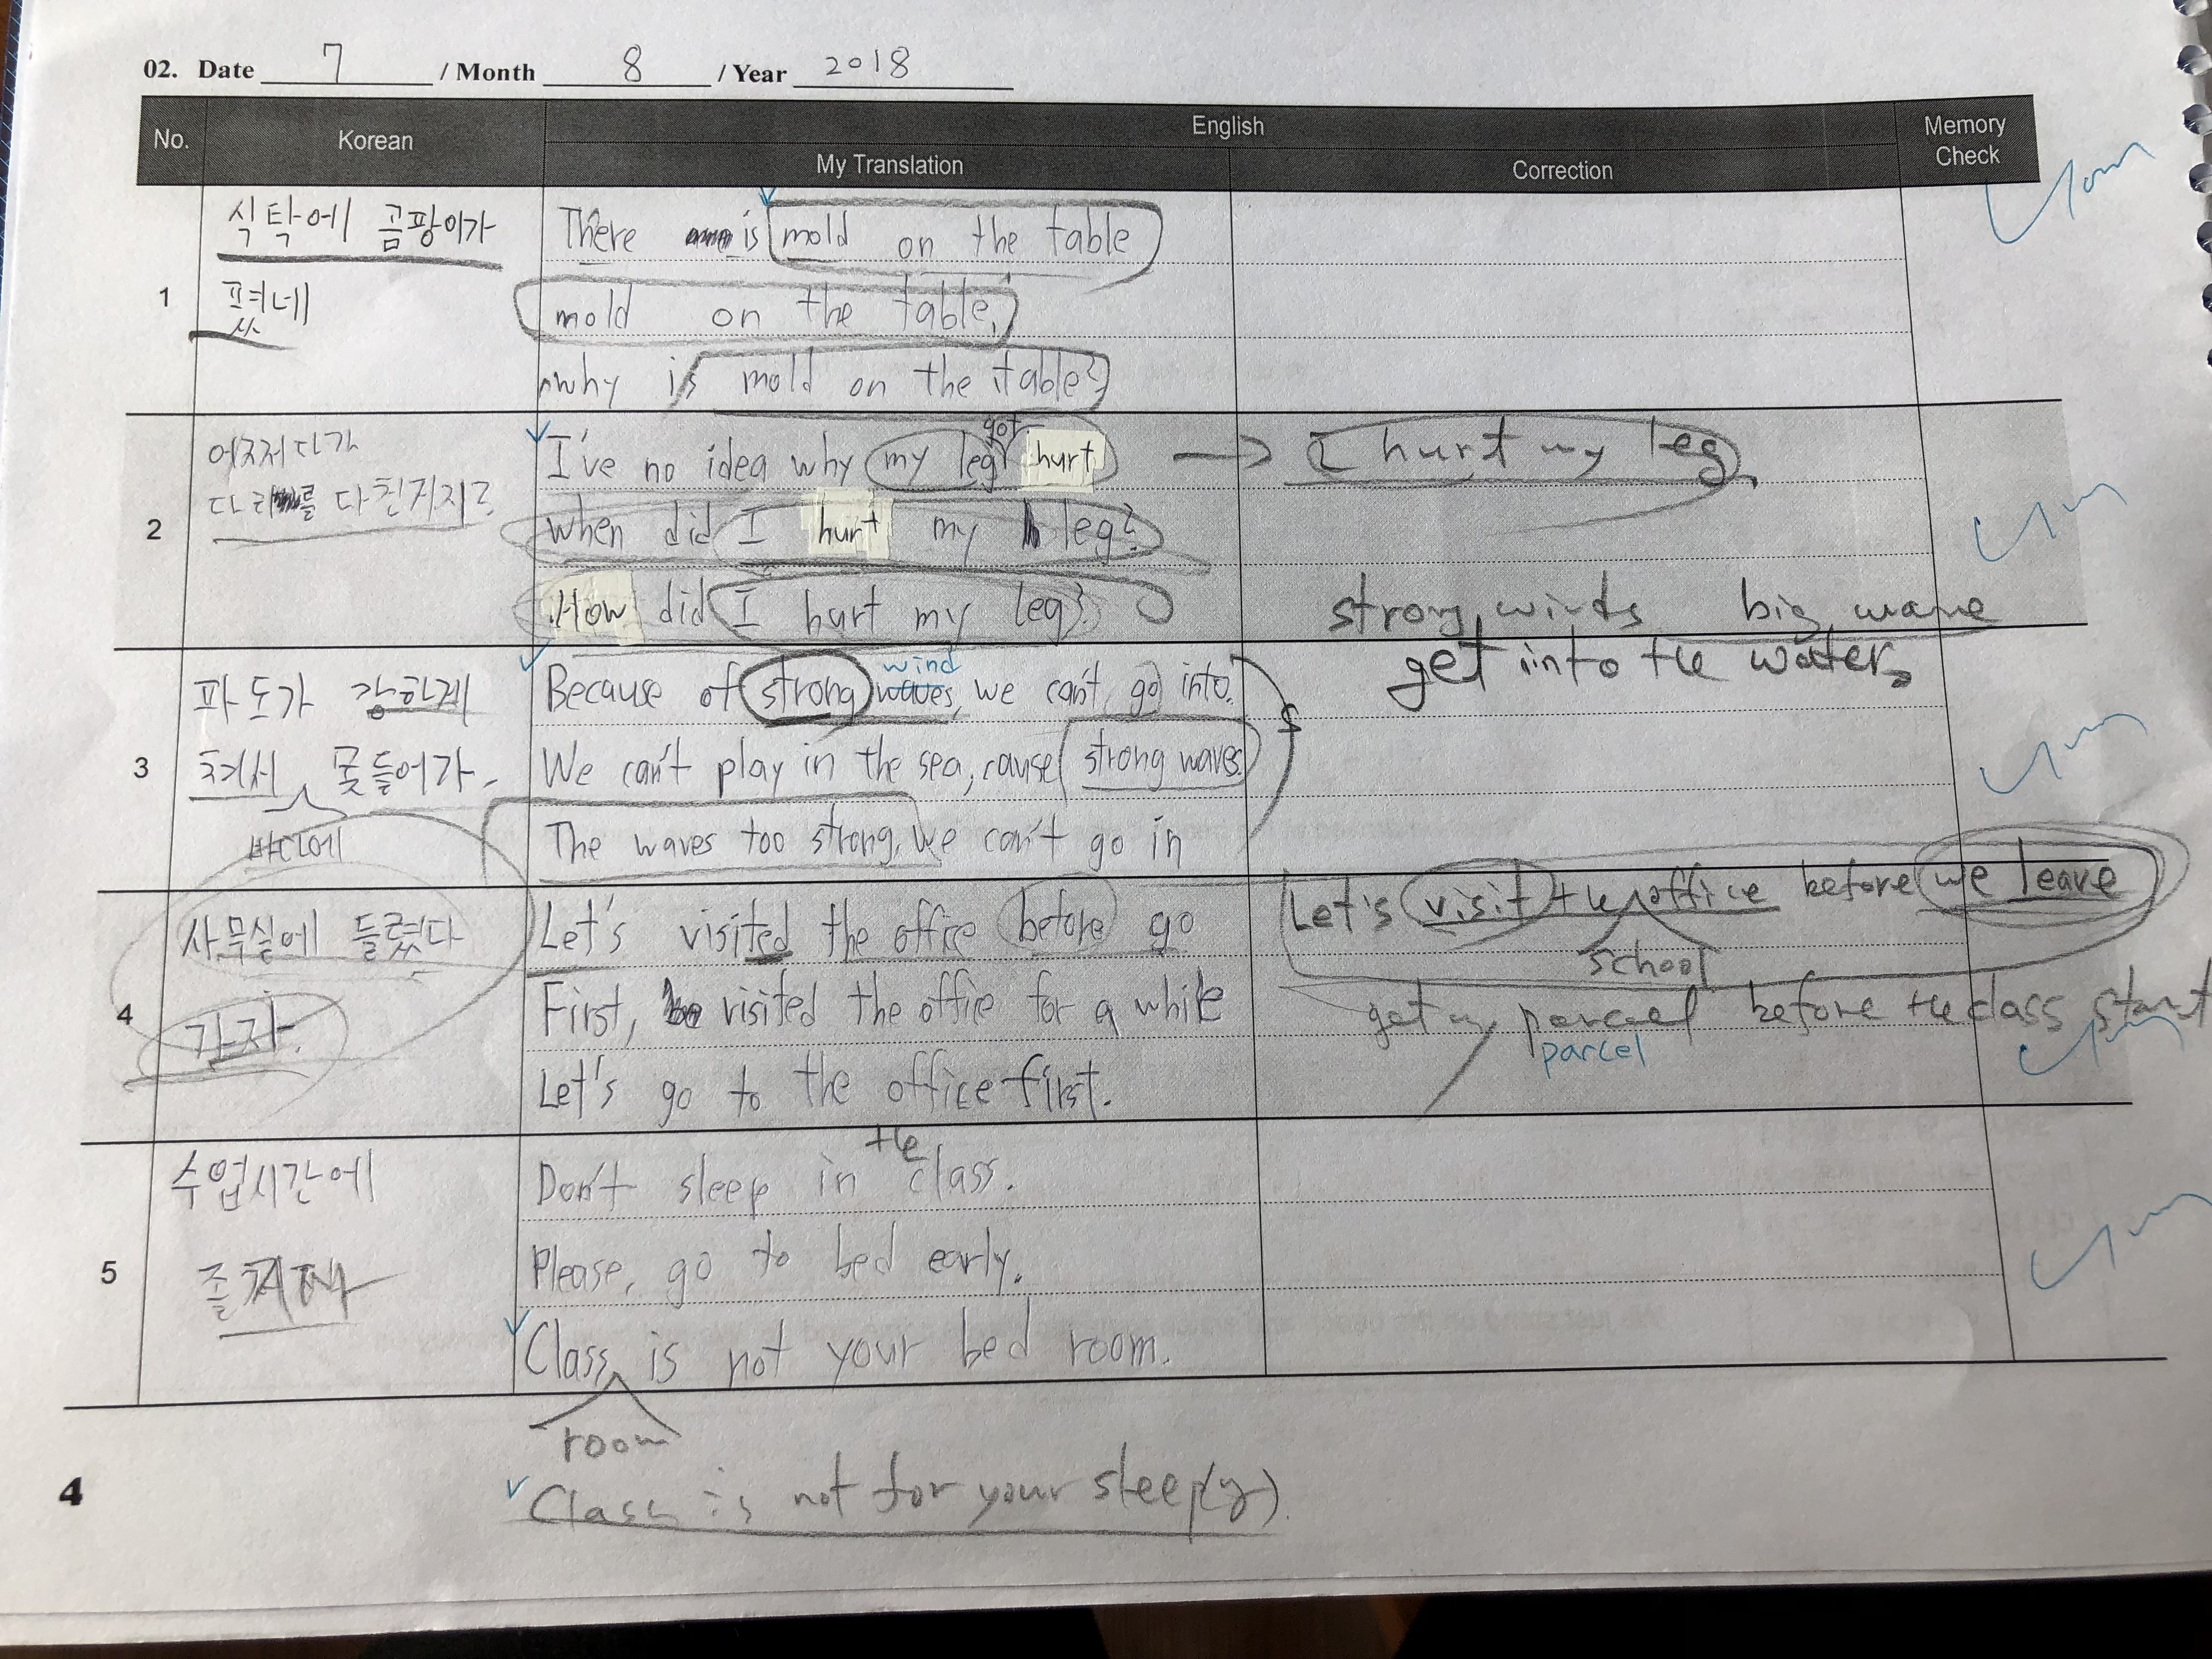 02. Date 7 / Month 8 / Year 2018
No. Korean English Memory Check
My Translation Correction
1
식탁에 곰팡이가
폈네
There is mold on the table
mold on the table,
why is mold on the table?
2
어쩌다가
다리를 다친거지?
got
I've no idea why my leg hurt → I hurt my leg.
when did I hurt my leg?
How did I hurt my leg?
strong winds big wave
get into the water.
3
파도가 강하게
쳐서 못들어가.
바다에
wind
Because of strong waves, we can't go into.
We can't play in the sea, cause strong waves.
The waves too strong, we can't go in
4
사무실에 들렸다
가자.
Let's visited the office before go
First, visited the office for a while
Let's go to the office first.
Let's visit the office before we leave
school
get my parcel before the class start
parcel
5
수업시간에
the
Don't sleep in class.
Please, go to bed early.
Class is not your bed room.
room
Class is not for your sleep(y).
4